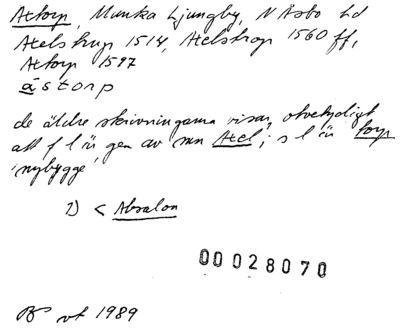 Åstorp, Munka Ljungby, N Åsbo hd
Atelstrup 1514, Atelstrop 1560 ff,
Astorp 1597
åstorp
de äldre skrivningarna visar, otvetydigt
att f l är gen av mn Atel; s l är torp
'nybygge'
1) < Absalon
00028070
vt 1989